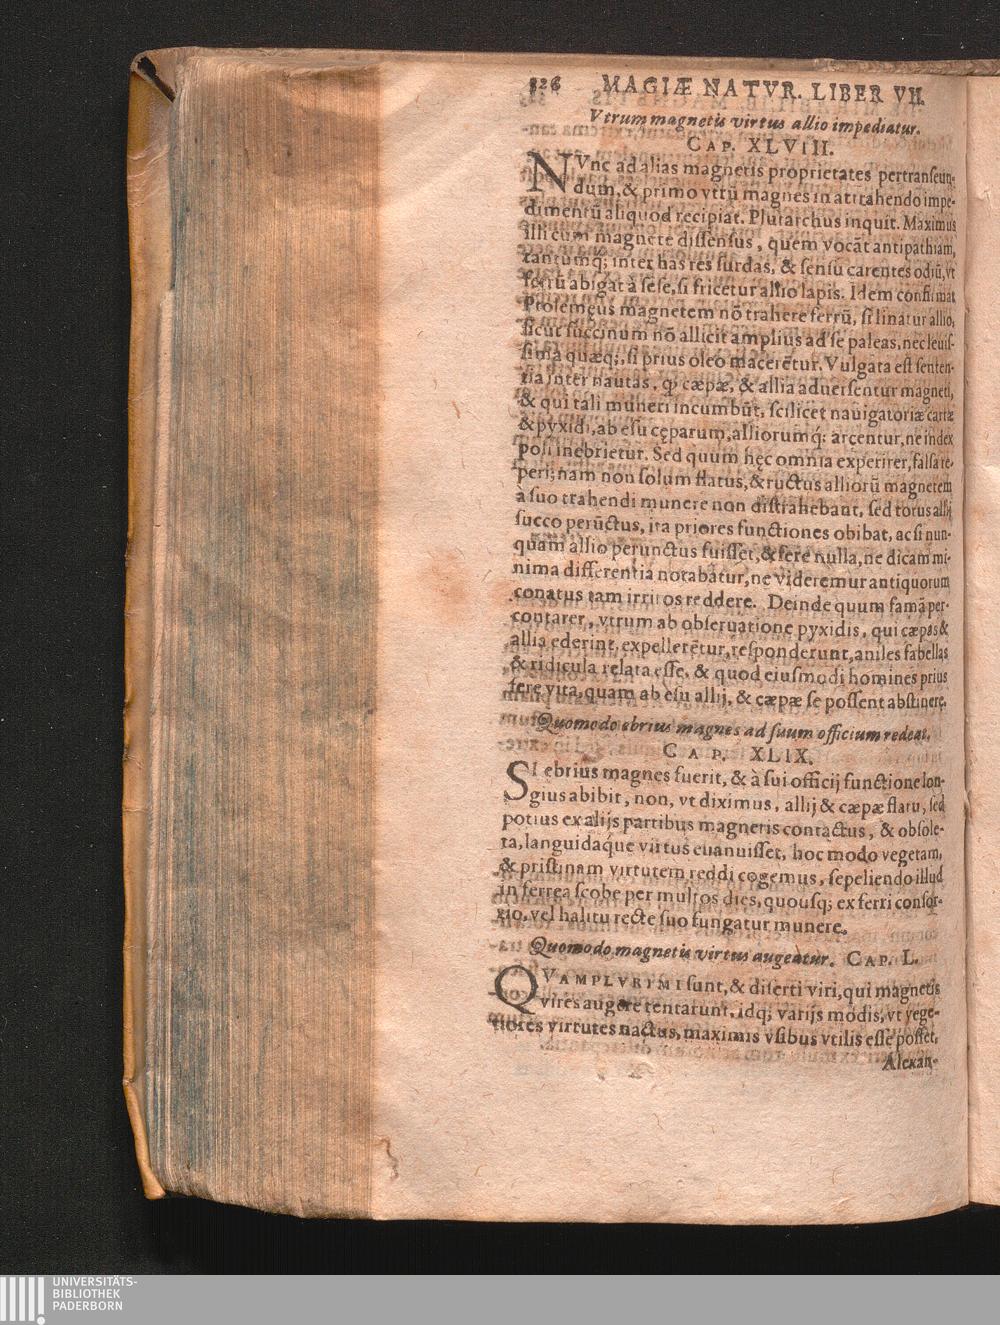 326 MAGIÆ NATVR. LIBER VII.
Vtrum magnetis virtus allio impediatur.
CAP. XLVIII.
NVnc ad alias magnetis proprietates pertranseun-
dum, & primo vtrũ magnes in attrahendo impe-
dimentũ aliquod recipiat. Plutarchus inquit. Maximus
illi cum magnete dissensus, quem vocãt antipathiam,
tantumq́; inter has res surdas, & sensu carentes odiũ, vt
ferrũ abigat à sese, si fricetur allio lapis. Idem confirmat
Ptolemęus magnetem nõ trahere ferrũ, si linatur allio,
sicut succinum nõ allicit amplius ad se paleas, nec leuis-
sima quæq;, si prius oleo macerẽtur. Vulgata est senten-
tia inter nautas, ꝙ cæpæ, & allia aduersentur magneti,
& qui tali muneri incumbũt, scilicet nauigatoriæ cartæ
& pyxidi, ab esu cęparum, alliorumq́; arcentur, ne index
poli inebrietur. Sed quum hęc omnia experirer, falsa re-
peri; nam non solum flatus, & ructus alliorũ magnetem
à suo trahendi munere non distrahebant, sed totus allij
succo perũctus, ita priores functiones obibat, ac si nun-
quam allio perunctus fuisset, & fere nulla, ne dicam mi-
nima differentia notabatur, ne videremur antiquorum
conatus tam irritos reddere. Deinde quum famã per-
contarer, vtrum ab obseruatione pyxidis, qui cæpas &
allia ederint, expellerẽtur, responderunt, aniles fabellas
& ridicula relata esse, & quod eiusmodi homines prius
fere vita, quam ab esu allij, & cæpæ se possent abstinere.
Quomodo ebrius magnes ad suum officium redeat.
CAP. XLIX.
SI ebrius magnes fuerit, & à sui officij functione lon-
gius abibit, non, vt diximus, allij & cæpæ flatu, sed
potius ex alijs partibus magnetis contactus, & obsole-
ta, languidaq́ue virtus euanuisset, hoc modo vegetam,
& pristinam virtutem reddi cogemus, sepeliendo illud
in ferrea scobe per multos dies, quousq; ex ferri consor-
tio, vel halitu recte suo fungatur munere.
Quomodo magnetis virtus augeatur. CAP. L.
QVAMPLVRIMI sunt, & diserti viri, qui magnetis
vires augere tentarunt, idq; varijs modis, vt vege-
tiores virtutes nactus, maximis vsibus vtilis esse posset,
Alexan-
UNIVERSITÄTS-
BIBLIOTHEK
PADERBORN